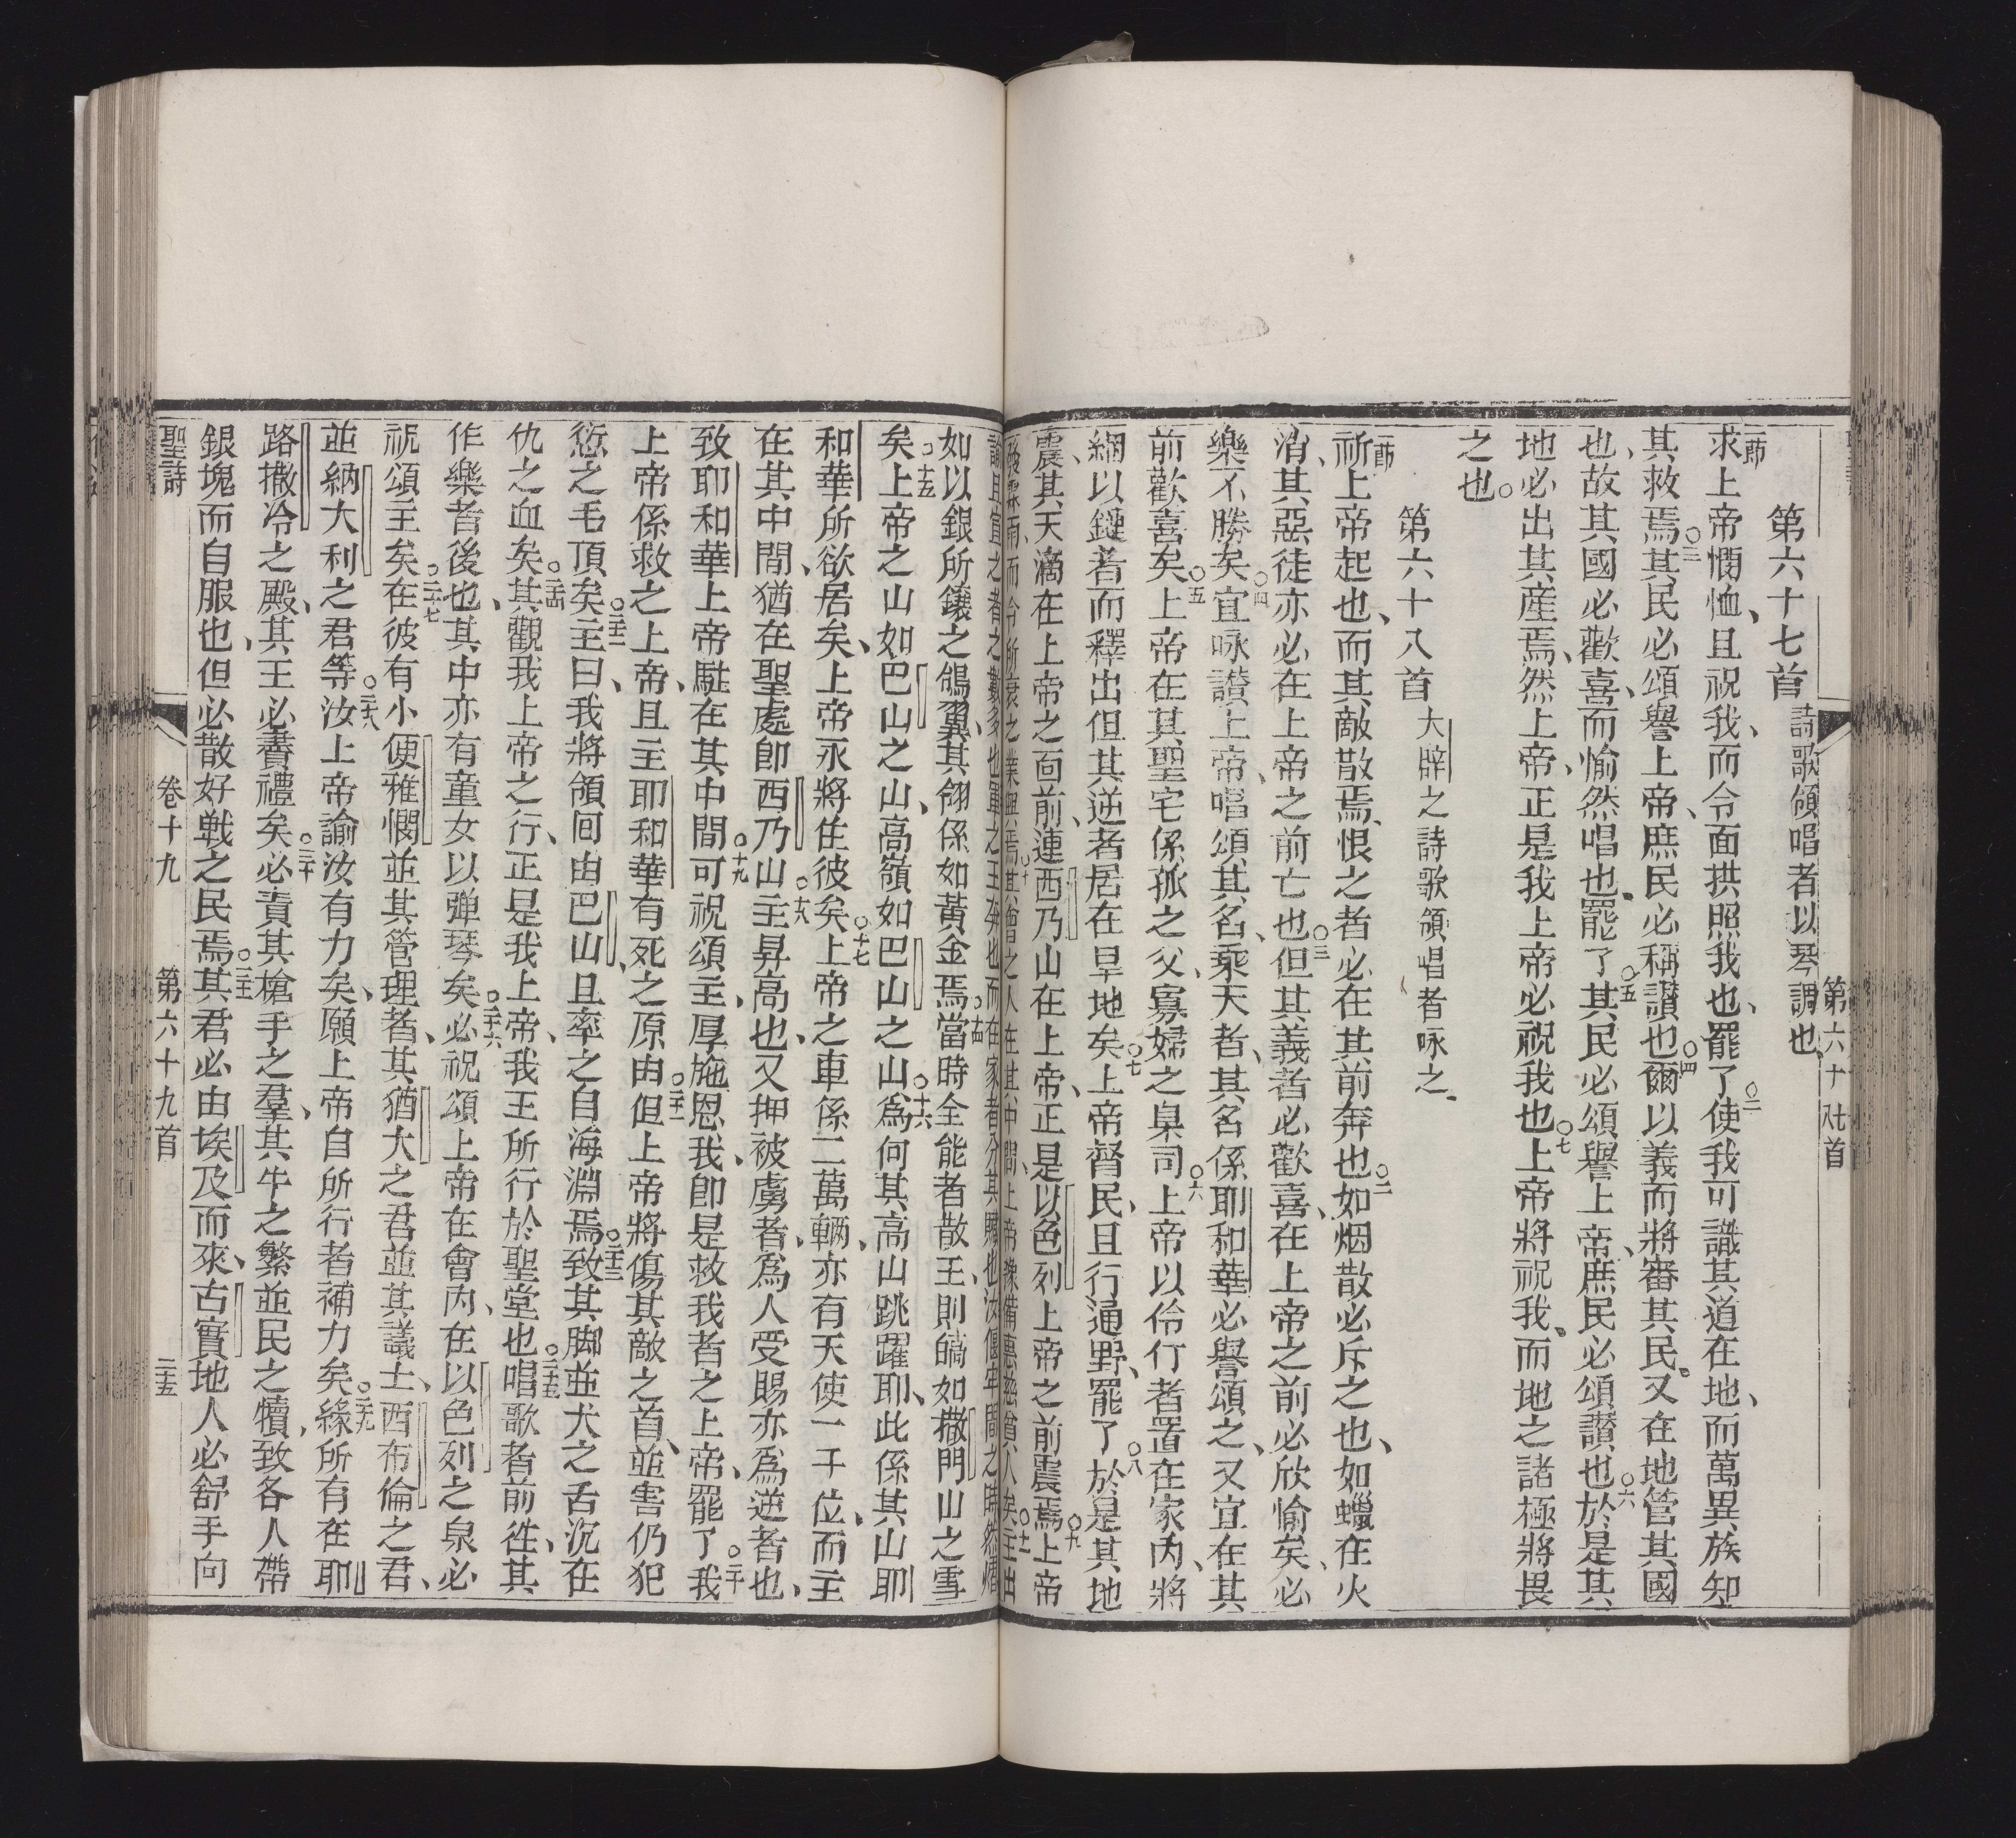 第六十七首 詩歌領唱者以琴調也
一節求上帝憫恤、且祝我、而令面拱照我也、罷了○二使我可識其道在地、而萬異族知
其救焉○三其民必頌譽上帝、庶民必稱讚也○四爾以義而將審其民。又在地管其國
也、故其國必歡喜、而愉然唱也。罷了○五其民必頌譽上帝、庶民必頌讚也○六於是其
地必出其產焉、然上帝、正是我上帝必祝我也○七上帝將祝我、而地之諸極將畏
之也。
第六十八首 大辟之詩歌領唱者咏之、
一節祈上帝起也、而其敵散焉、恨之者必在其前奔也○二如烟散必斥之也、如蠟在火
消、其惡徒亦必在上帝之前亡也○三但其義者必歡喜、在上帝之前必欣愉矣、必
樂不勝矣○四宜咏讃上帝、唱頌其名、乘天者、其名係耶和華必譽頌之、又宜在其
前歡喜矣○五上帝在其聖宅係孤之父、寡婦之臬司○六上帝以伶仃者置在家內、將
綑以鏈者而釋出但其逆者居在旱地矣○七上帝督民、且行通野、罷了○八於是其地
震、其天滴在上帝之面前、連西乃山在上帝、正是以色列上帝之前震焉○九上帝
雨、而令所衰之業興焉○十其會之人在其中間、上帝豫備惠慈貧人矣○十一主出
諭且宣之者之數多也軍之王奔也而在家者分其贓也汝偃牢間之時然
如以銀所鑲之鴿翼、其翎係如黃金焉○十四當時全能者散王、則皜如撒門山之雪
矣○十五上帝之山如巴山之山、高嶺如巴山之山○十六爲何其高山跳躍耶、此係其山耶
和華所欲居矣、上帝永將住彼矣○十七上帝之車係二萬輛、亦有天使一千位、而主
在其中間、猶在聖處卽西乃山○十八主昇高也、又押被虜者、爲人受賜亦爲逆者也、
致耶和華上帝駐在其中間○十九可祝頌主、厚施恩我、卽是救我者之上帝、罷了○二十我
上帝係救之上帝、且主耶和華有死之原由○二十一但上帝將傷其敵之首、並害仍犯
愆之毛頂矣○二十二主曰、我將領囘由巴山、且率之自海淵焉○二十三致其脚並犬之舌沉在
仇之血矣○二十四其觀我上帝之行、正是我上帝、我王所行於聖堂也○二十五唱歌者前徃、其
作樂者後也、其中亦有童女以彈琴矣○二十六必祝頌上帝在會內、在以色列之泉必
祝頌主矣○二十七在彼有小便雅憫並其管理者、其猶大之君並其議士、西布倫之君、
並納大利之君等○二十八汝上帝諭汝有力矣、願上帝自所行者補力矣○二十九緣所有在耶
路撒冷之殿、其王必賷禮矣○三十必責其槍手之羣、其牛之繁並民之犢、致各人帶
銀塊而自服也、但必散好戰之民焉○三十一其君必由埃及而來、古實地人必舒手向
聖詩 卷十九 第六十九首 二十五